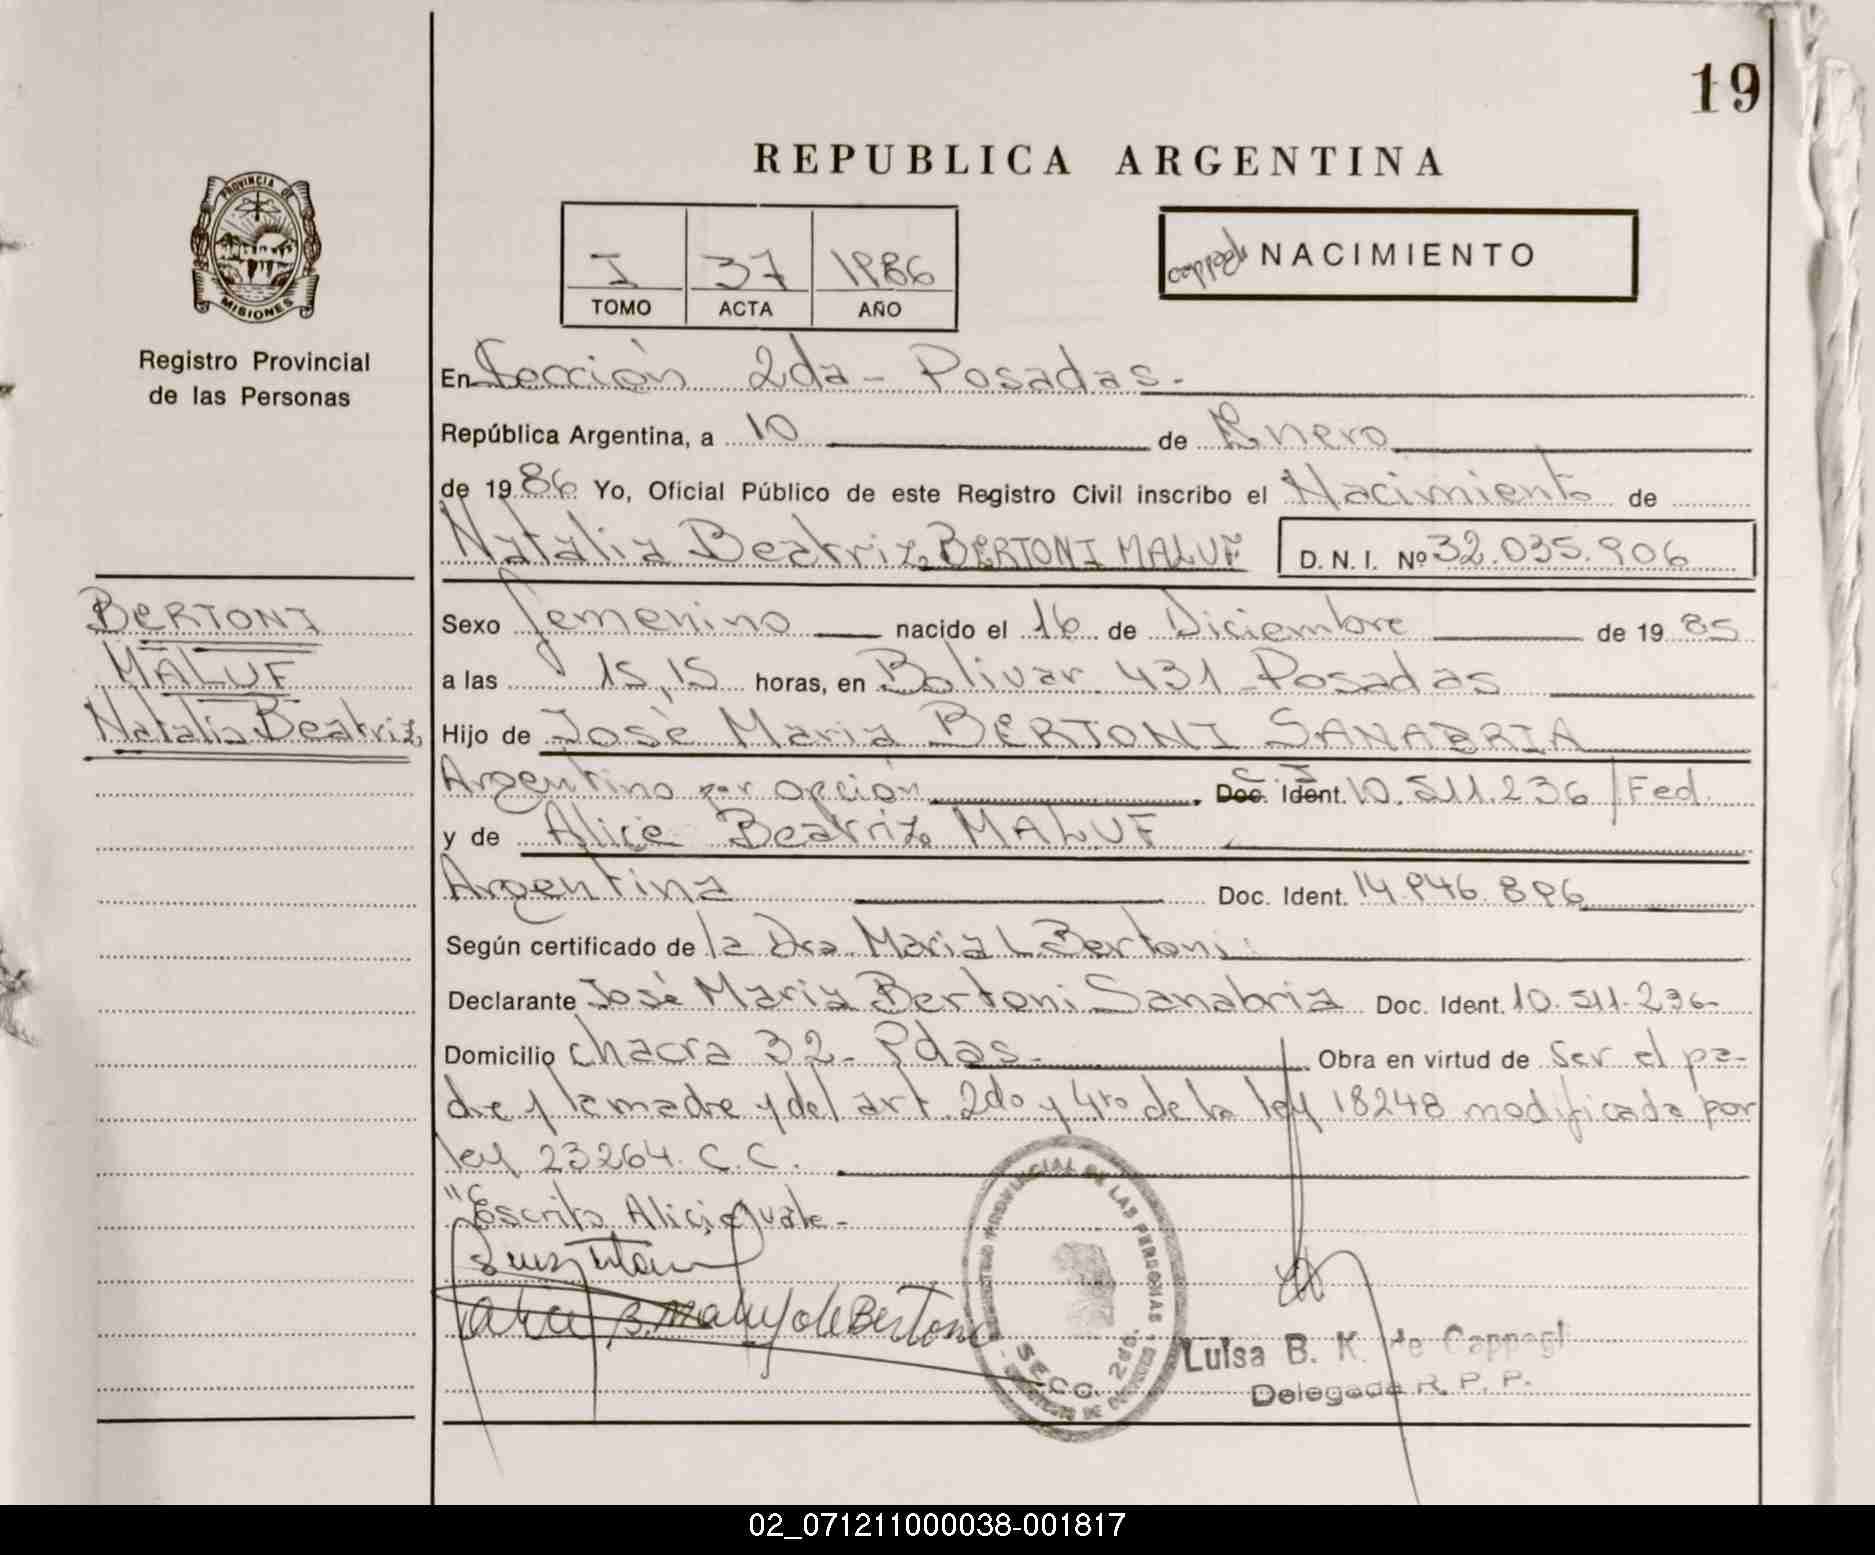 19
REPUBLICA ARGENTINA
PROVINCIA DE
MISIONES
Registro Provincial
de las Personas
I 37 1986
TOMO ACTA AÑO
NACIMIENTO
En Sección 2da - Posadas -
República Argentina, a 10 de Enero
de 19 86 Yo, Oficial Público de este Registro Civil inscribo el Nacimiento de
Natalia Beatriz BERTONI MALUF D. N. I. Nº 32.035.906
BERTONI
MALUF
Natalia Beatriz
Sexo femenino nacido el 16 de Diciembre de 19 85
a las 15,15 horas, en Bolivar 431 Posadas
Hijo de José Maria BERTONI SANABRIA
Argentino por opción C. I Doc. Ident. 10.511.236 / Fed.
y de Alice Beatriz MALUF
Argentina Doc. Ident. 14.946.896
Según certificado de la Dra. Maria L. Bertoni
Declarante José Maria Bertoni Sanabria Doc. Ident. 10.511.236-
Domicilio chacra 32- Pdas- Obra en virtud de ser el pa-
dre y la madre y del art. 2do y 4to de la ley 18248 modificada por
ley 23264. C.C.
"Escrito Alice, vale-
Alice B. Maluf de Bertoni
PROVINCIAL DE LAS PERSONAS
SECC. 2da.
Luisa B. K. de Cappagli
Delegada R. P. P.
02_071211000038-001817